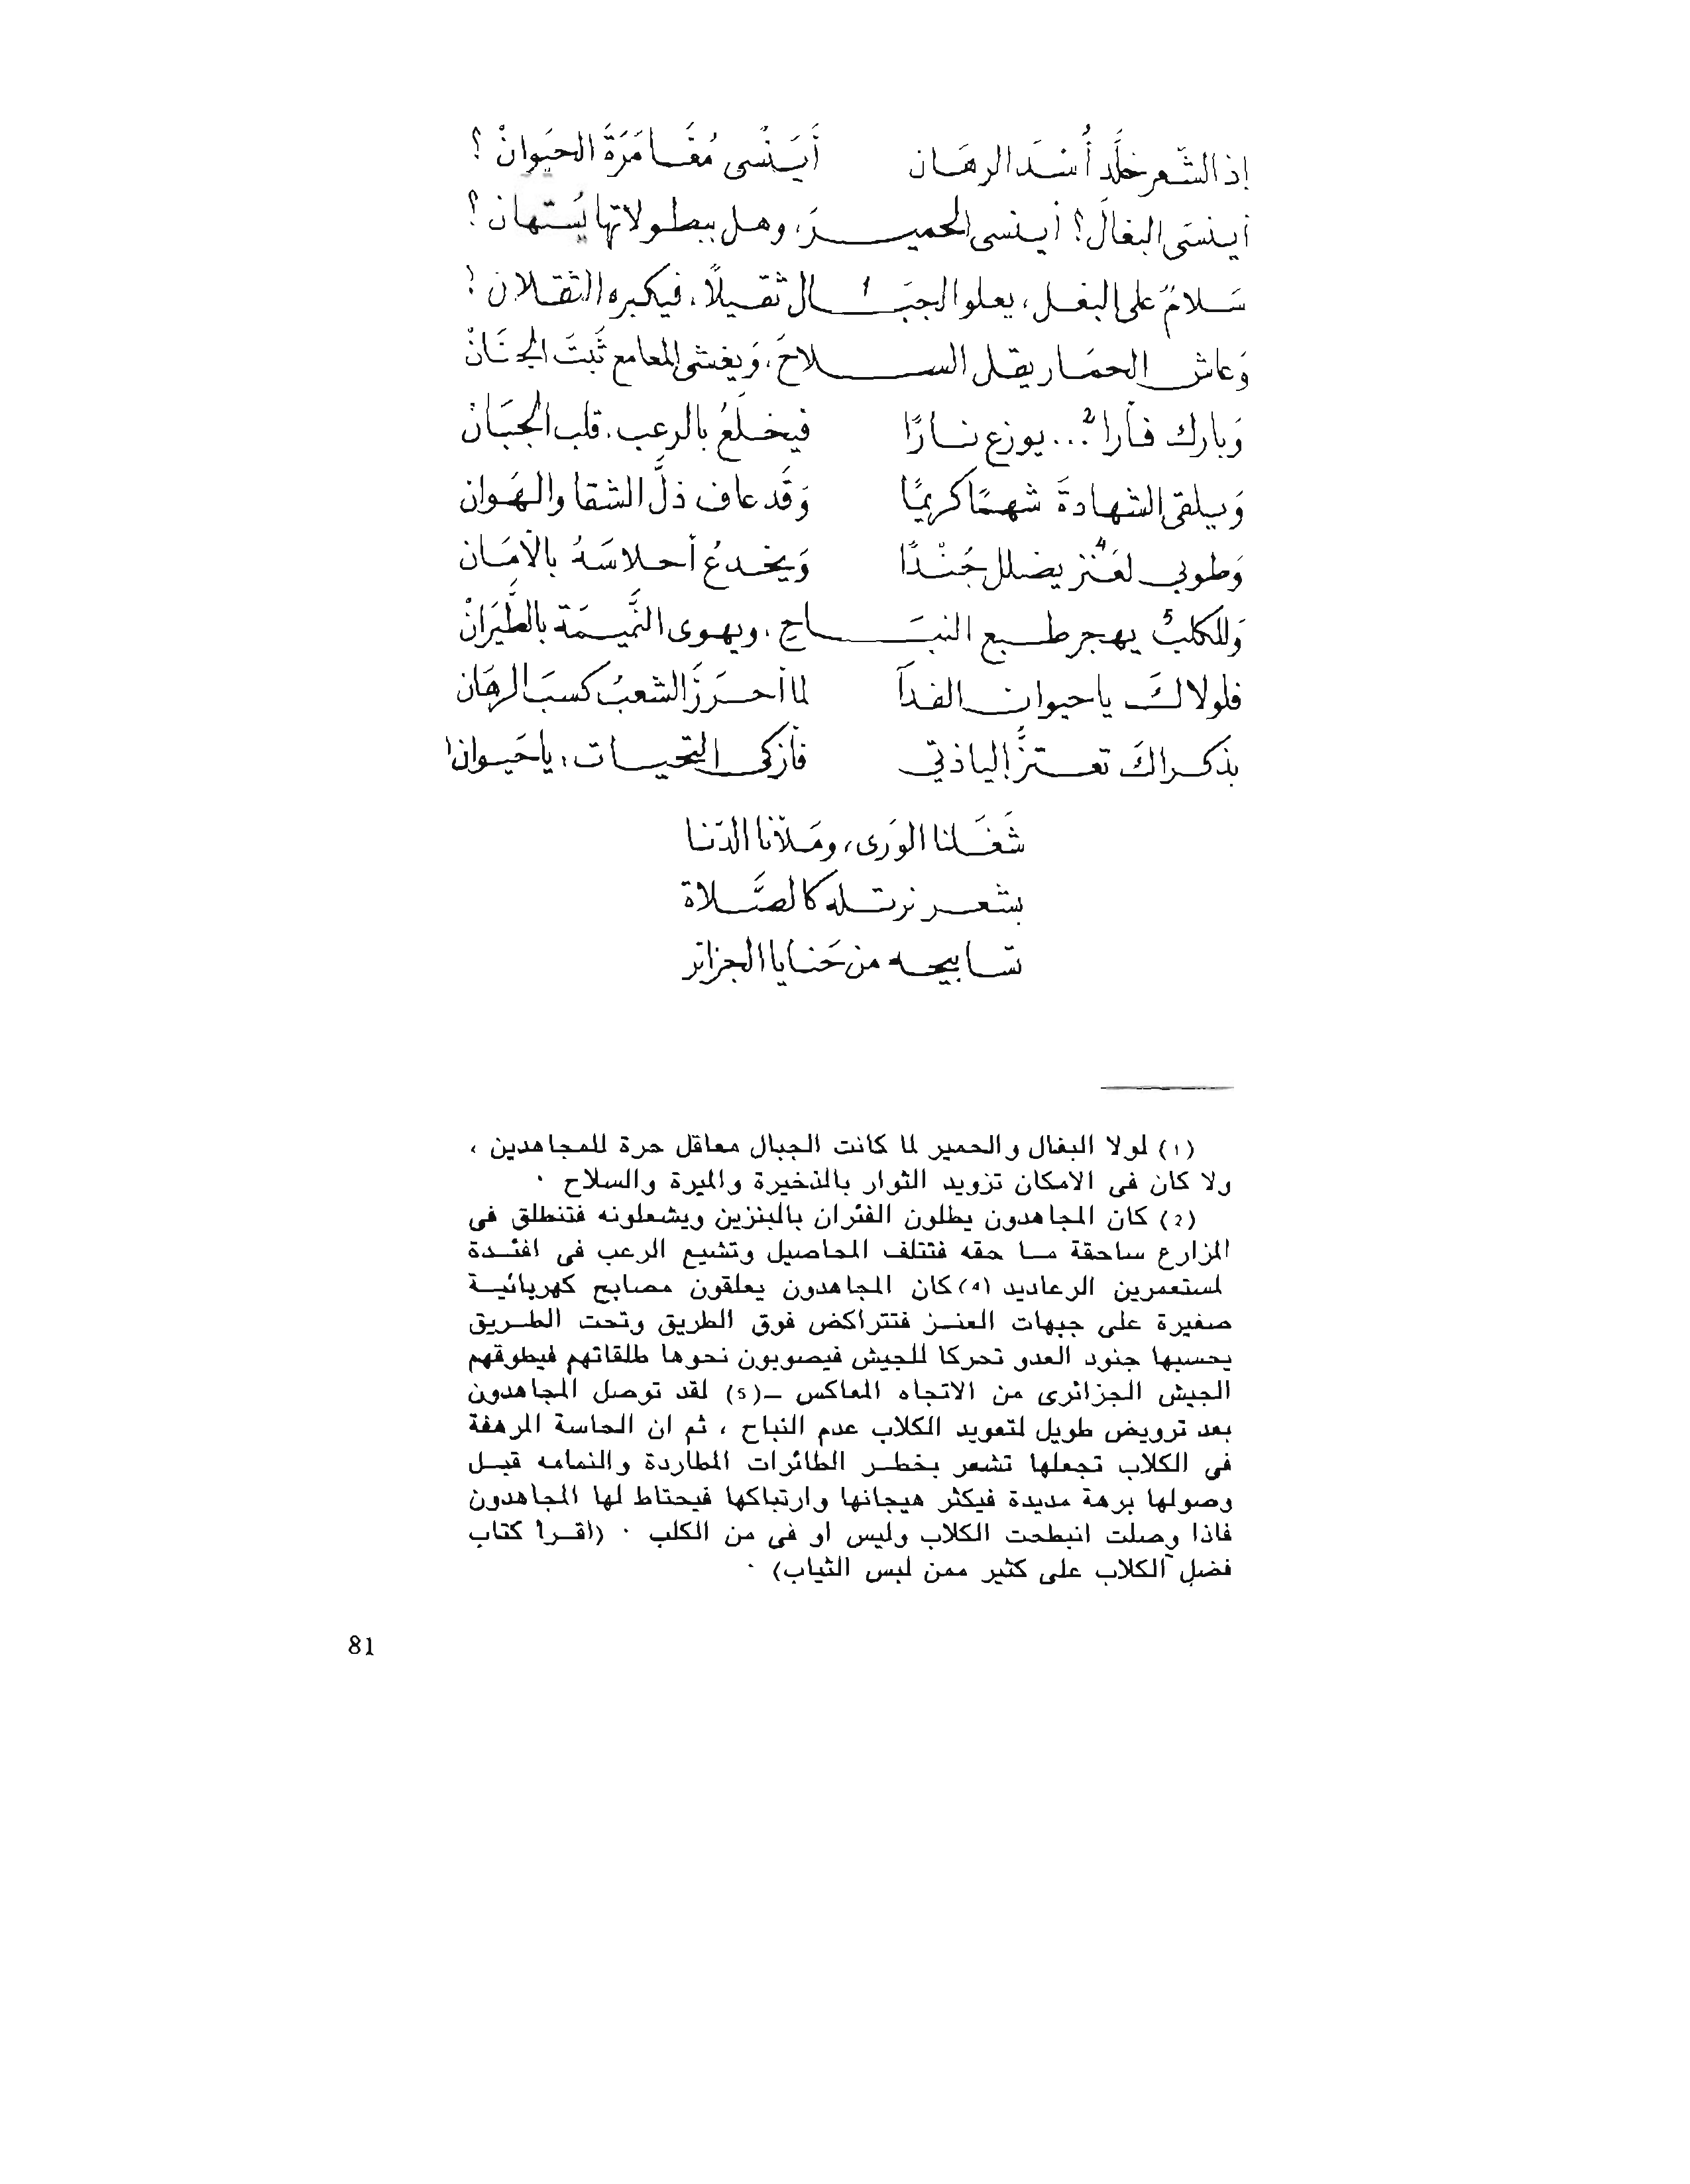 إذ الشّعر خلَّد أُسْدَ الرهَان أَيَنْسى مُغَامَرَةَ الحيَوانْ ؟
أينسَى البغالَ؟ أينسى الحميرَ، وهل ببطولاتها يُسْتهان ؟
سَلامٌ على البغل، يعلو الجبَال 1 ثقيلًا، فيكبره الثقلان !
وَعاش الحمَار يقل السلاحَ، وَيغشى المعامع ثَبتَ الجنَانْ
وَبارك فأرا 2... يوزع نارًا فيخلَعُ بالرعب، قلب الجبَانْ
وَيلقى الشهادةَ شهمًا كريمًا وَقَد عاف ذلَّ الشقا والهَوان
وَطوبى لعَنْز 4 يضلل جُنْدًا وَيخدعُ أحلاسَهُ بالأمَان
وَللكلبُ 5 يهجر طبع النبَاح، ويهوى النَّميمَة بالطَّيَرَانْ
فلولاكَ يا حيوان الفدآ لما أحرَزَ الشعبُ كسبَ الرهَان
بذكراكَ تعتزُّ إلياذتي فأزكى التحيات، ياحَيوان!
شَغَلنا الوَرى، ومَلأنا الدّنا
بشعر نرتله كالصَّلاة
تسابيحه من حَنايا الجزائر
(1) لولا البغال والحمير لما كانت الجبال معاقل حرة للمجاهدين ،
ولا كان فى الامكان تزويد الثوار بالذخيرة والميرة والسلاح .
(2) كان المجاهدون يطلون الفئران بالبنزين ويشعلونه فتنطلق فى
المزارع ساحقة ما حقه فتتلف المحاصيل وتشيع الرعب فى افئدة
لمستعمرين الرعاديد (4) كان المجاهدون يعلقون مصابح كهربائية
صغيرة على جبهات العنز فتتراكض فوق الطريق وتحت الطريق
يحسبها جنود العدو تحركا للجيش فيصوبون نحوها طلقاتهم فيطوقهم
الجيش الجزائرى من الاتجاه المعاكس –(5) لقد توصل المجاهدون
بعد ترويض طويل لتعويد الكلاب عدم النباح ، ثم ان الحاسة المرهفة
فى الكلاب تجعلها تشعر بخطر الطائرات المطاردة والنمامه قبل
وصولها برهة مديدة فيكثر هيجانها وارتباكها فيحتاط لها المجاهدون
فاذا وصلت انبطحت الكلاب وليس او فى من الكلب . (اقرأ كتاب
فضل الكلاب على كثير ممن لبس الثياب) .
81